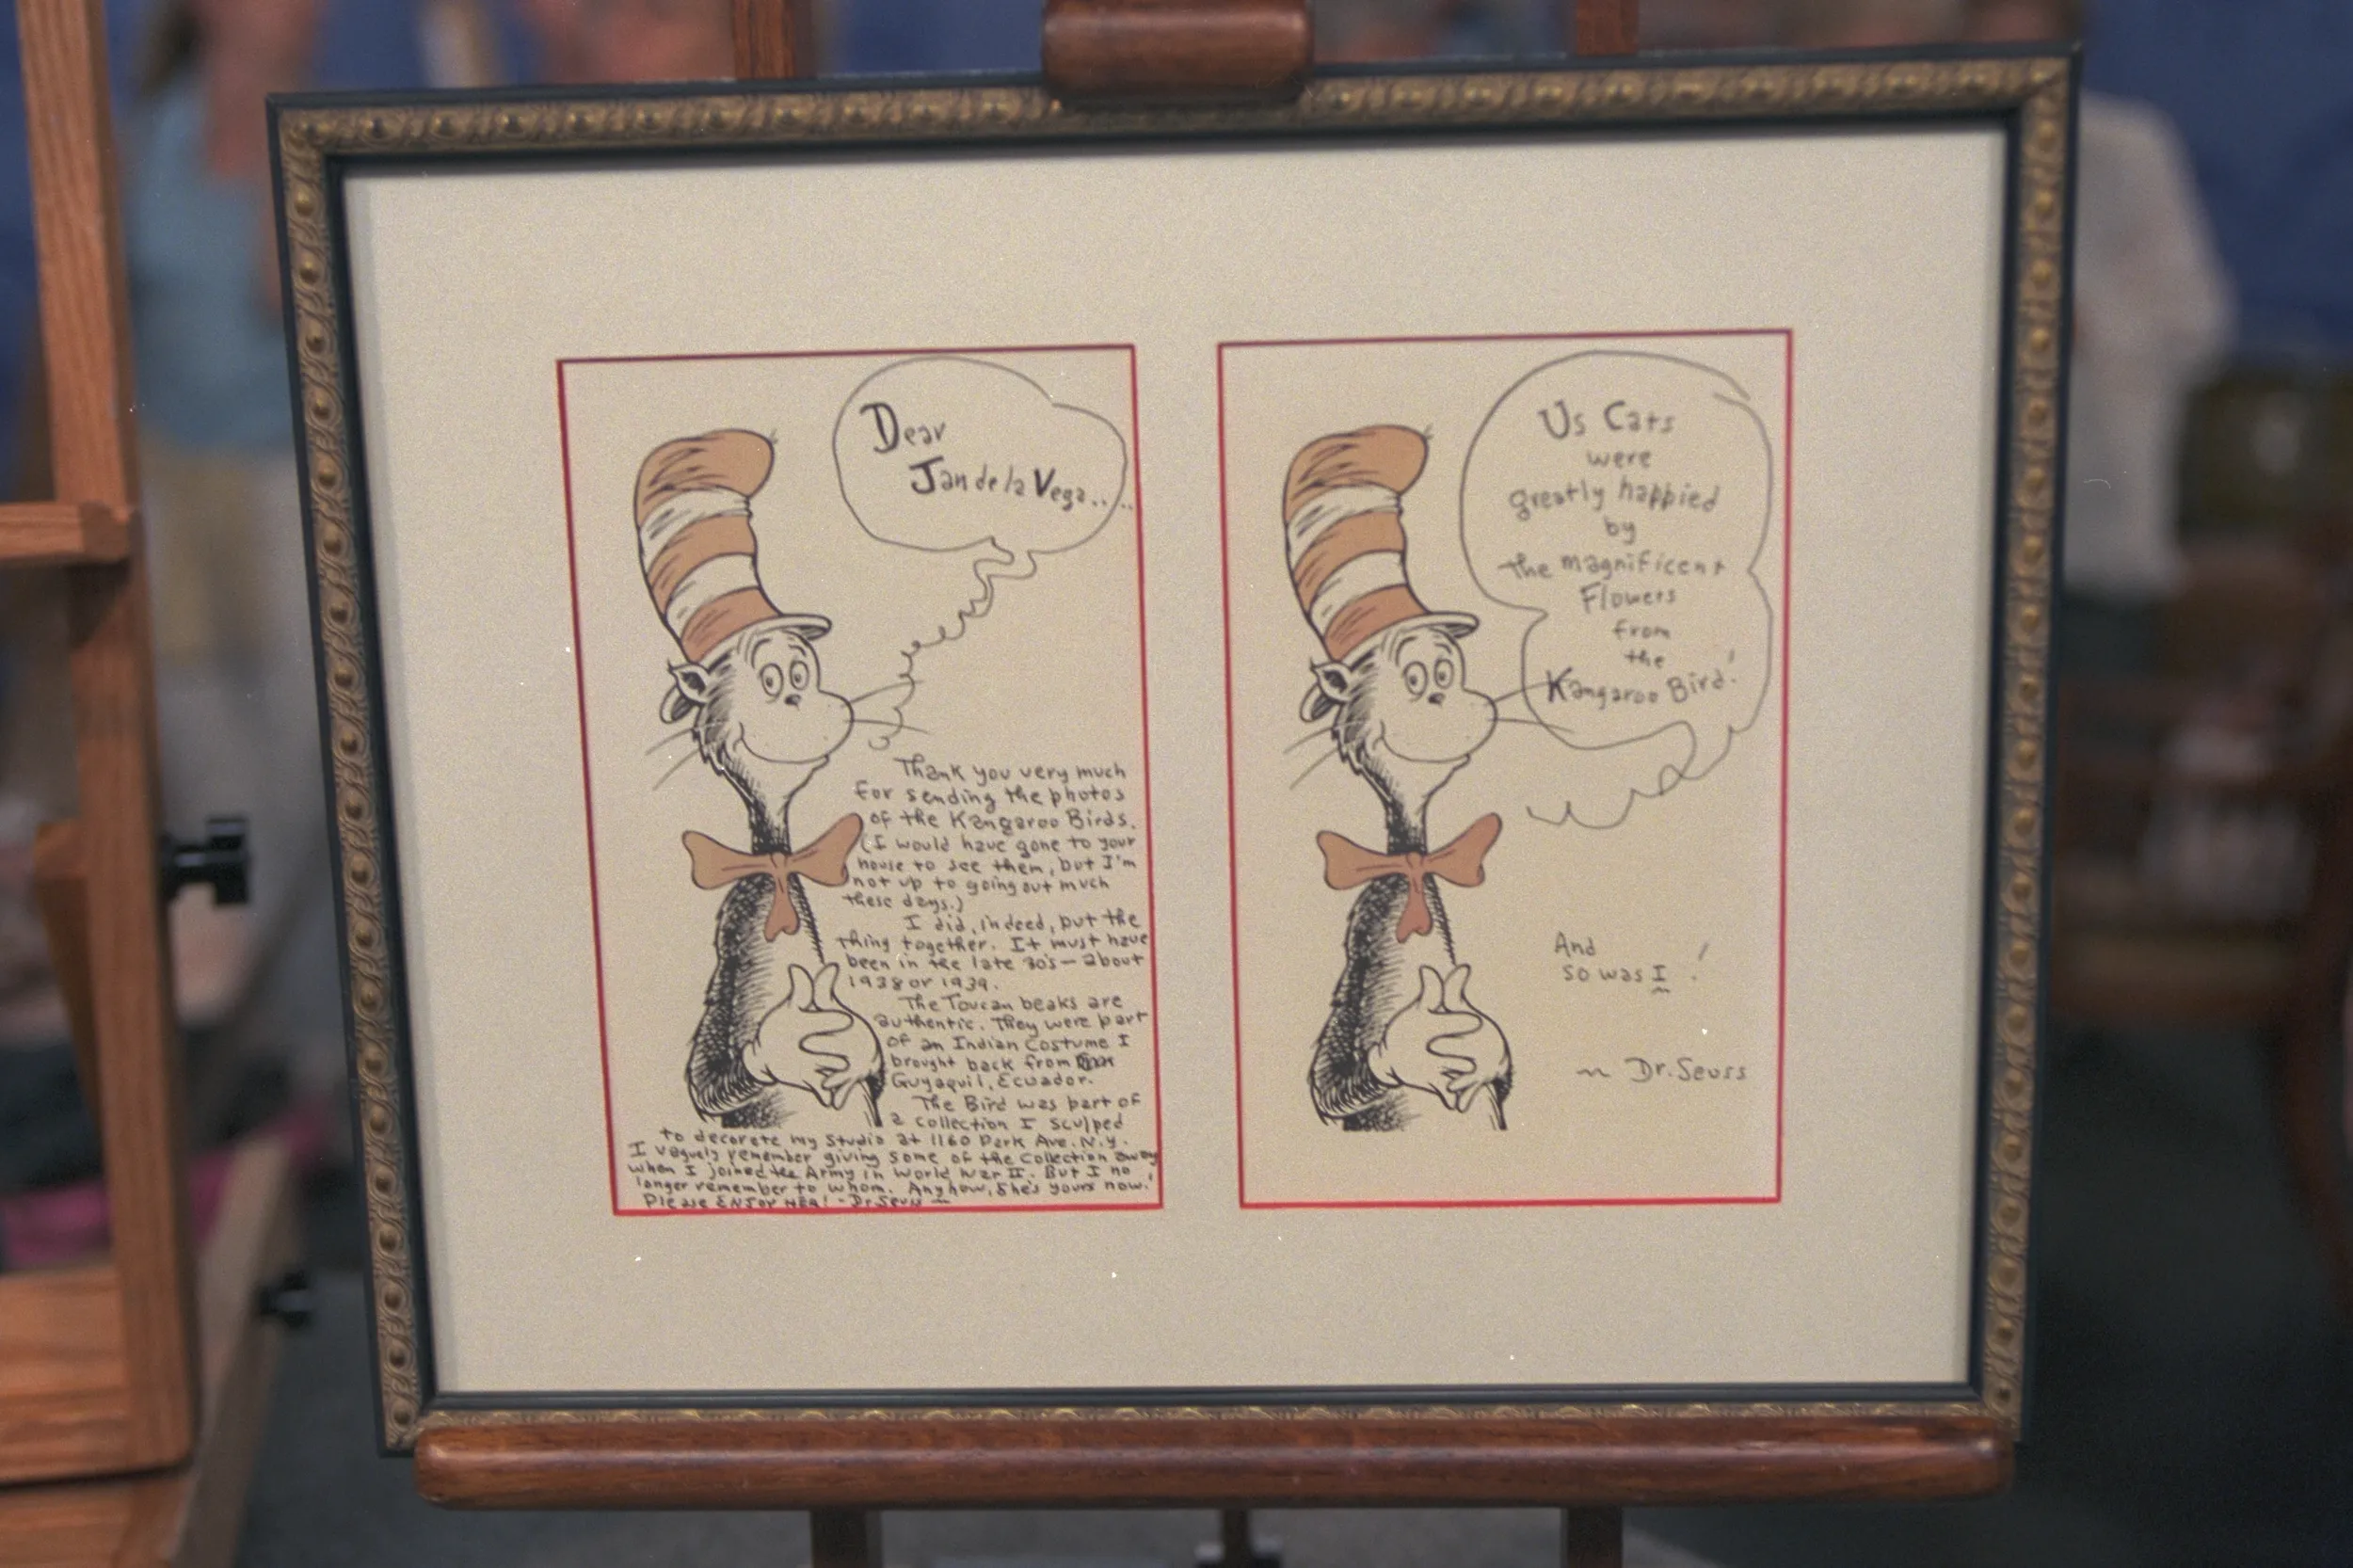 Dear
Jan de la Vega.....
Thank you very much
for sending the photos
of the Kangaroo Birds.
(I would have gone to your
house to see them, but I'm
not up to going out much
these days.)
I did, indeed, put the
thing together. It must have
been in the late 30's — about
1938 or 1939.
The Toucan beaks are
authentic. They were part
of an Indian Costume I
brought back from
Guyaquil, Ecuador.
The Bird was part of
a collection I sculped
to decorate my Studio at 1160 Park Ave. N.Y.
I vaguely remember giving some of the Collection away
when I joined the Army in World War II. But I no
longer remember to whom. Anyhow, She's yours now!
Please ENJOY HER! - Dr. Seuss
Us Cats
were
greatly happied
by
the magnificent
Flowers
from
the
Kangaroo Bird!
And
so was I !
~ Dr. Seuss